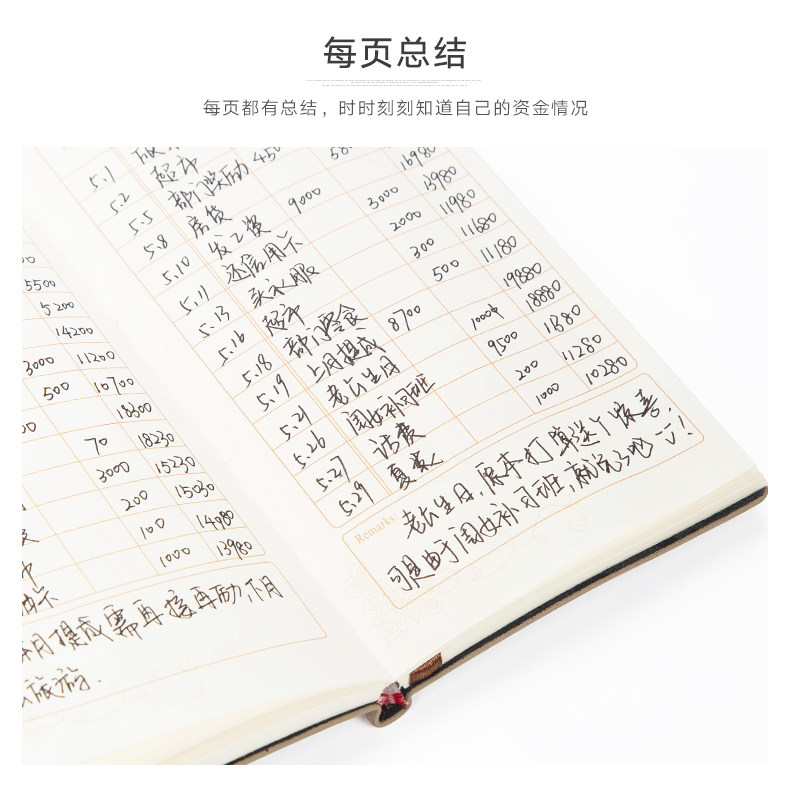 每页总结
每页都有总结，时时刻刻知道自己的资金情况
5500
5200
14200
3000 11200
500 10700
18300
70 18230
3000 15230
200 15030
100 14980
1000 13980
月提成需再接再励 下月
旅游.
5.1
5.2 超市 450 580
5.5 部门奖励 16980
5.8 房贷 3000 13980
5.10 发工资 9000
5.11 还信用卡 2000 11980
5.13 买衣服 300 11680
5.16 超市 500 11180
5.18 部门零食
5.19 上月提成 8700 19880
5.21 老公生日 1000 18880
5.26 周女补习班 9500
5.27 话费 200 11280
5.29 夏 1000 10280
Remarks
老公生日, 原本打算送个惊喜,
可是由于周女补习班, 就说了吧 !